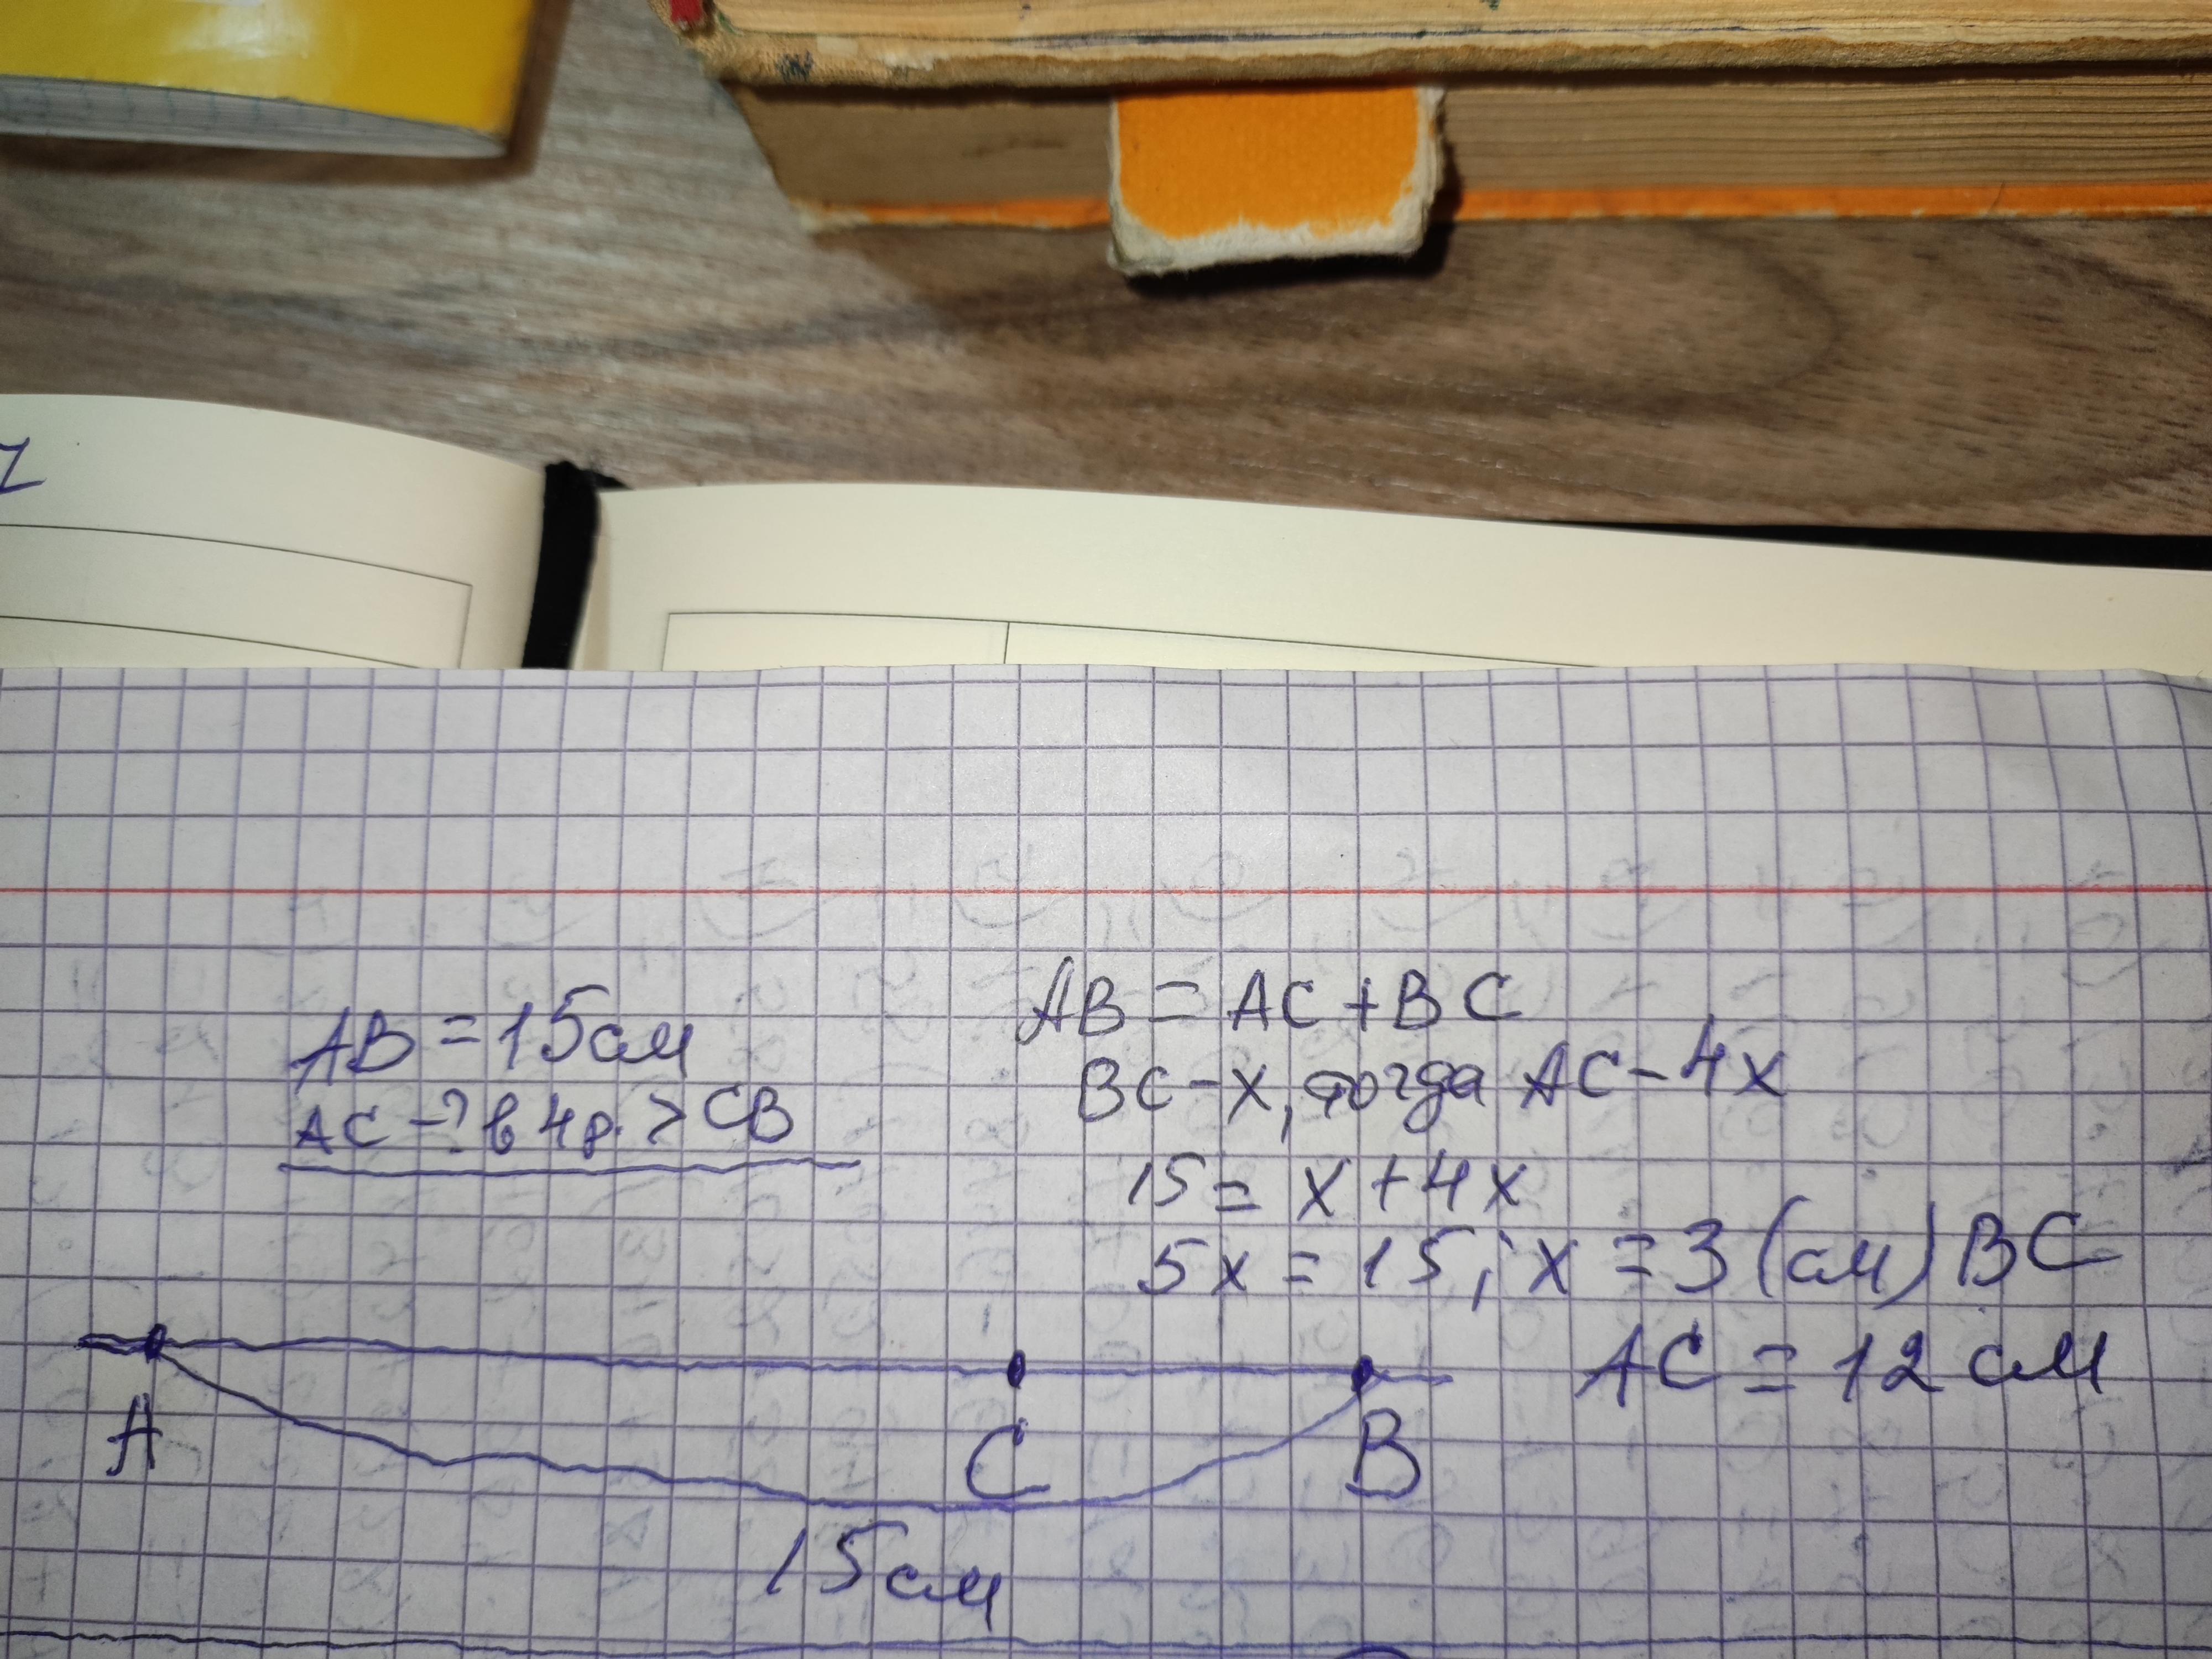 AB = 15 см
AC - ? в 4 р. > CB
AB = AC + BC
BC - x, тогда AC - 4x
15 = x + 4x
5x = 15; x = 3 (см) BC
AC = 12 см
A
C
B
15 см